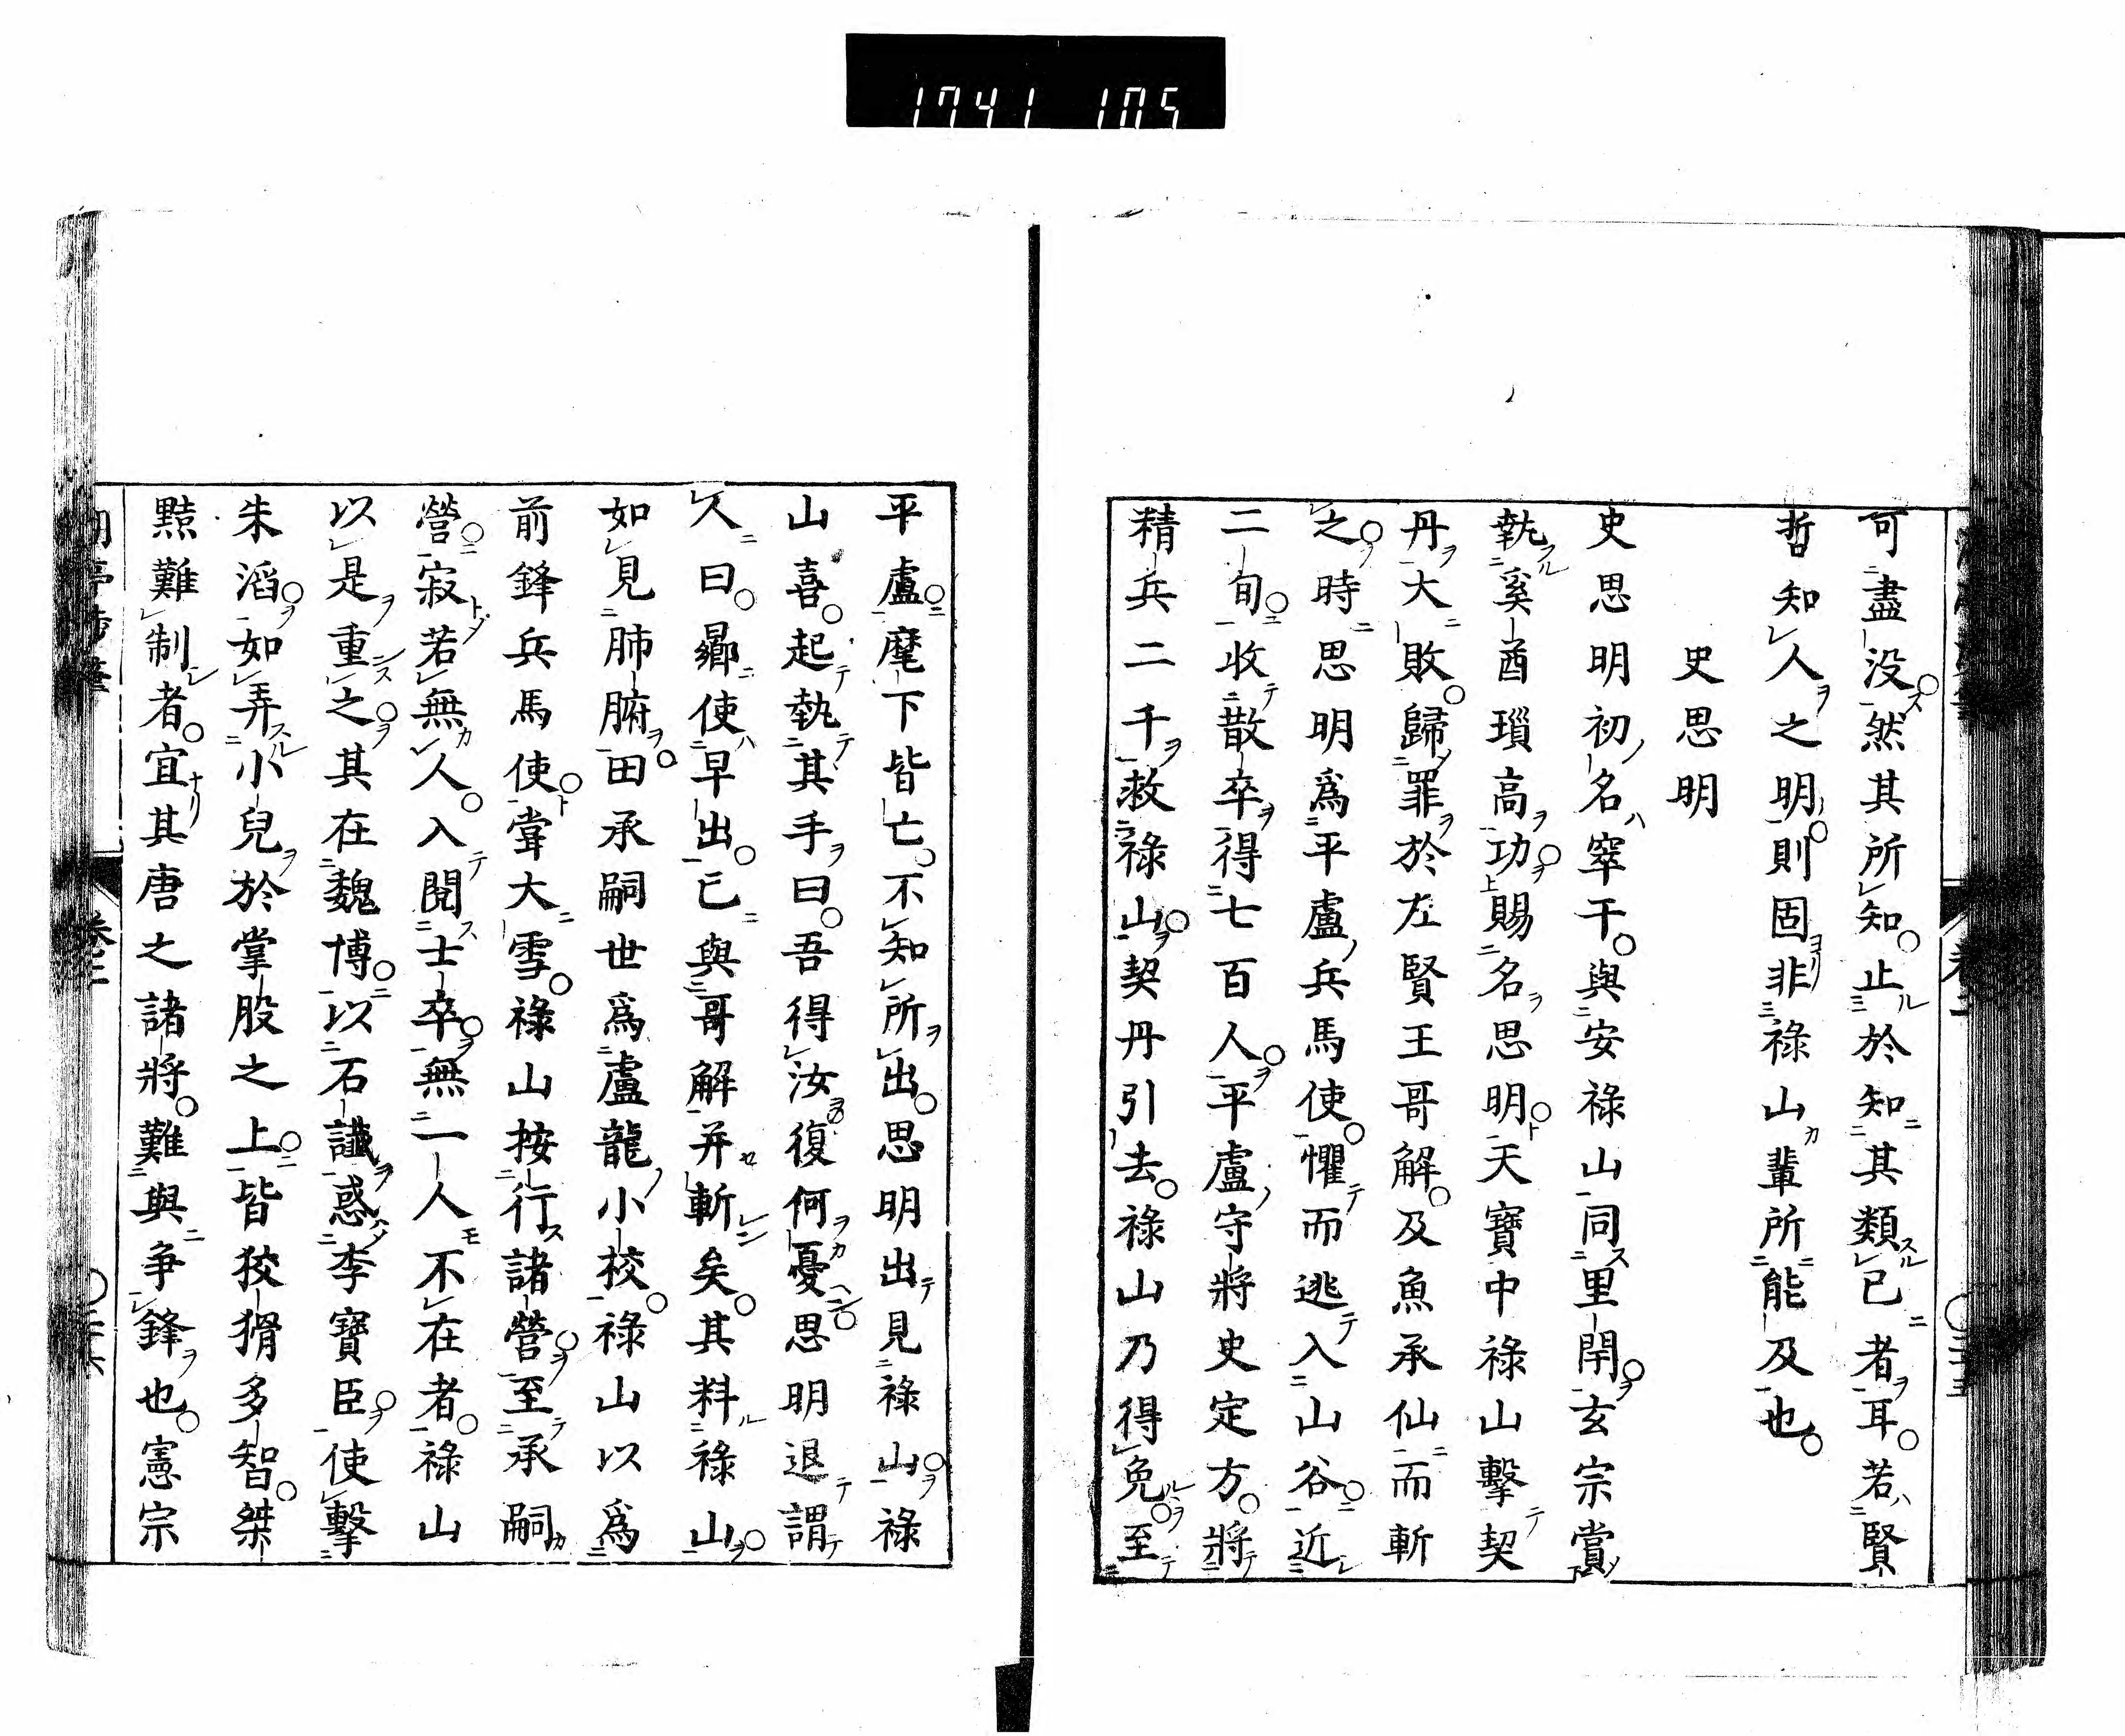 1741 105
可盡没然其所知止於知其類已者耳若賢
哲知人之明則固非祿山輩所能及也
史思明
史思明初名窣干與安祿山同里閈玄宗賞
執奚酋瑣高功賜名思明天寶中祿山擊契
丹大敗歸罪於左賢王哥解及魚承仙而斬
之時思明爲平盧兵馬使懼而逃入山谷近
二旬收散卒得七百人平盧守將史定方將
精兵二千救祿山契丹引去祿山乃得免至
平盧麾下皆亡不知所出思明出見祿山祿
山喜起執其手曰吾得汝復何憂思明退謂
人曰曏使早出已與哥解并斬矣其料祿山
如見肺腑田承嗣世爲盧龍小校祿山以爲
前鋒兵馬使甞大雪祿山按行諸營至承嗣
營寂若無人入閱士卒無一人不在者祿山
以是重之其在魏博以石讖惑李寶臣使擊
朱滔如弄小兒於掌股之上皆狡猾多智桀
黠難制者宜其唐之諸將難與爭鋒也憲宗
卷二